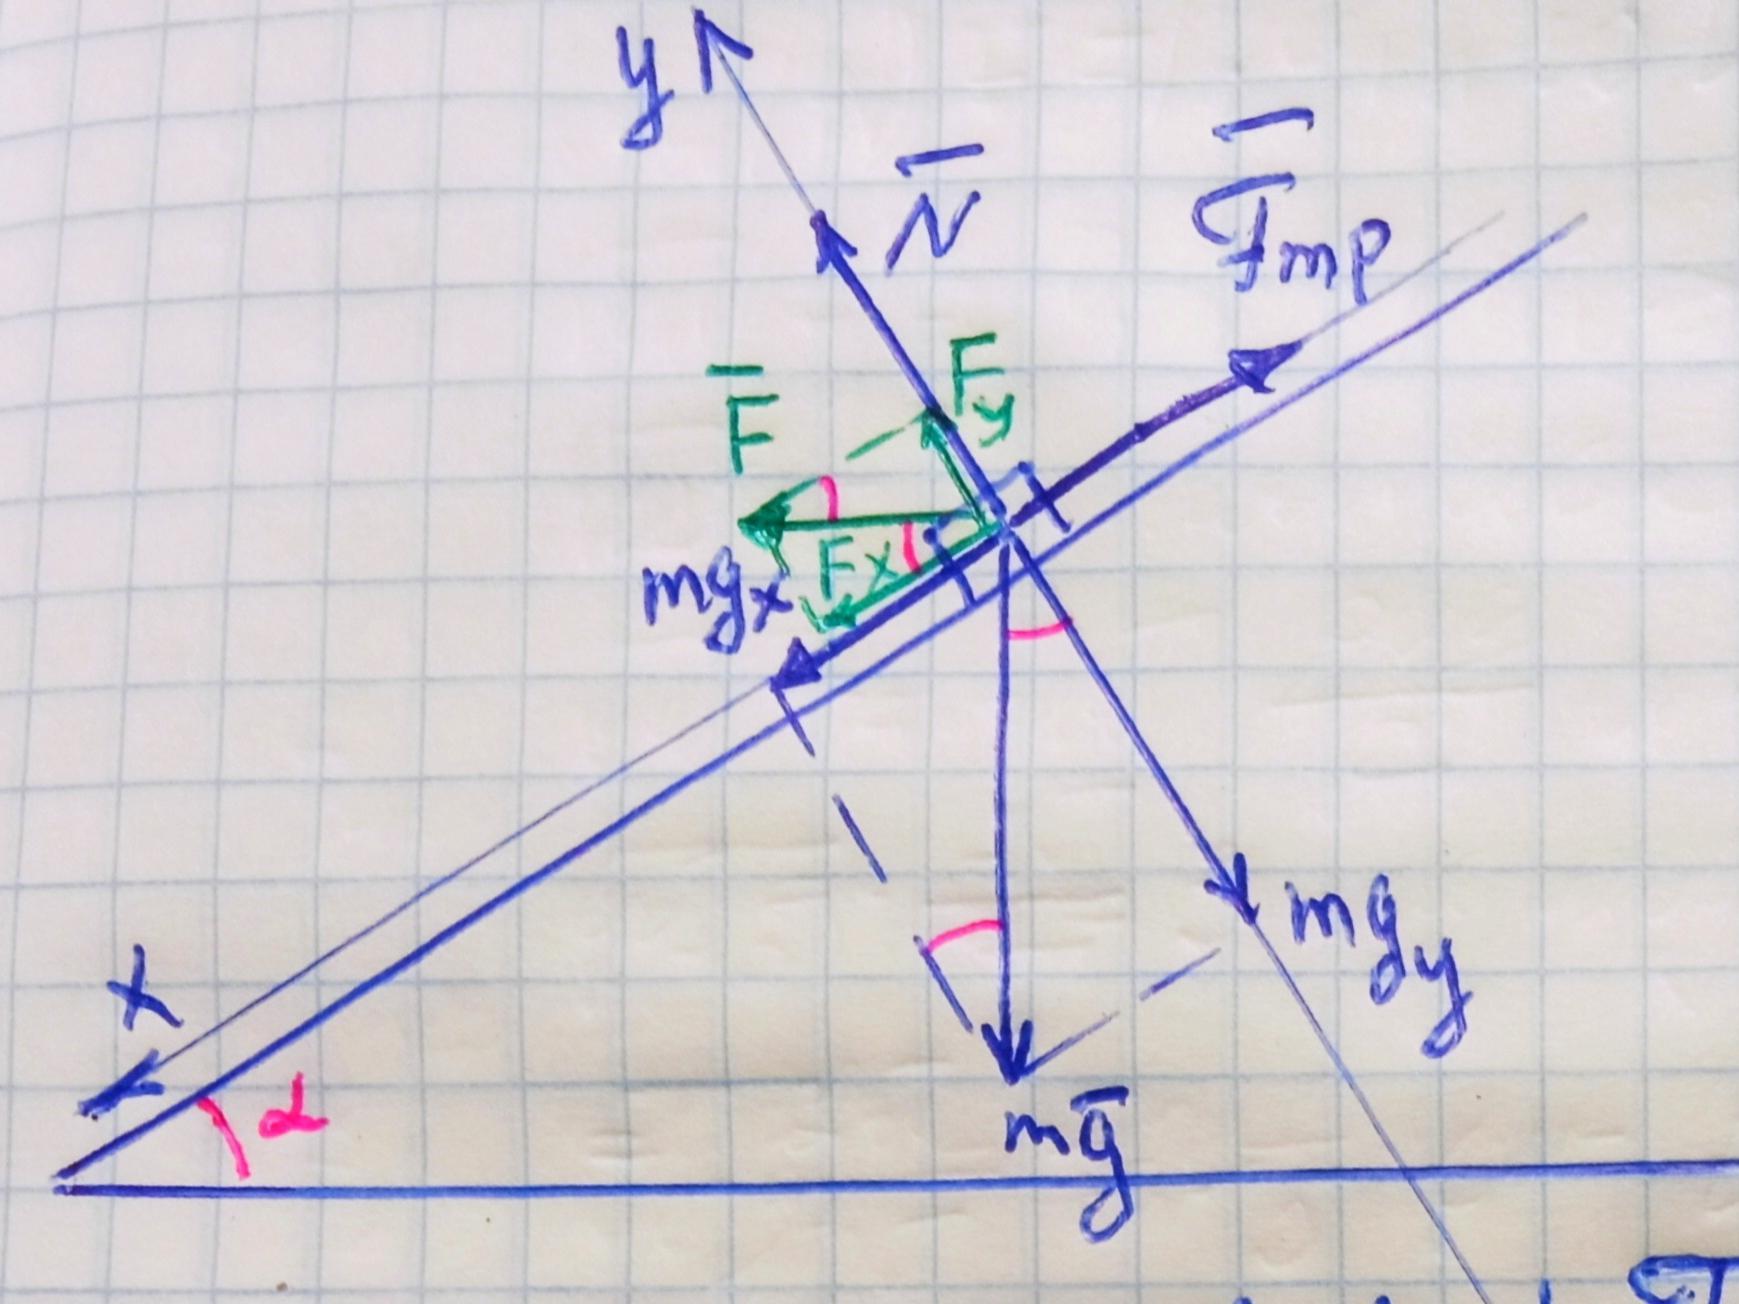 y
N̅
F̅тр
F̅
Fy
Fx
mgx
mgy
x
α
mg̅